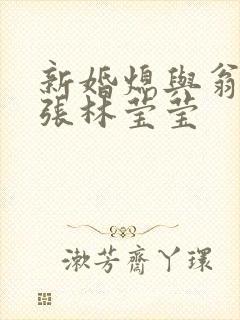 新婚熄與翁
張林莹莹
漱芳齋丫環